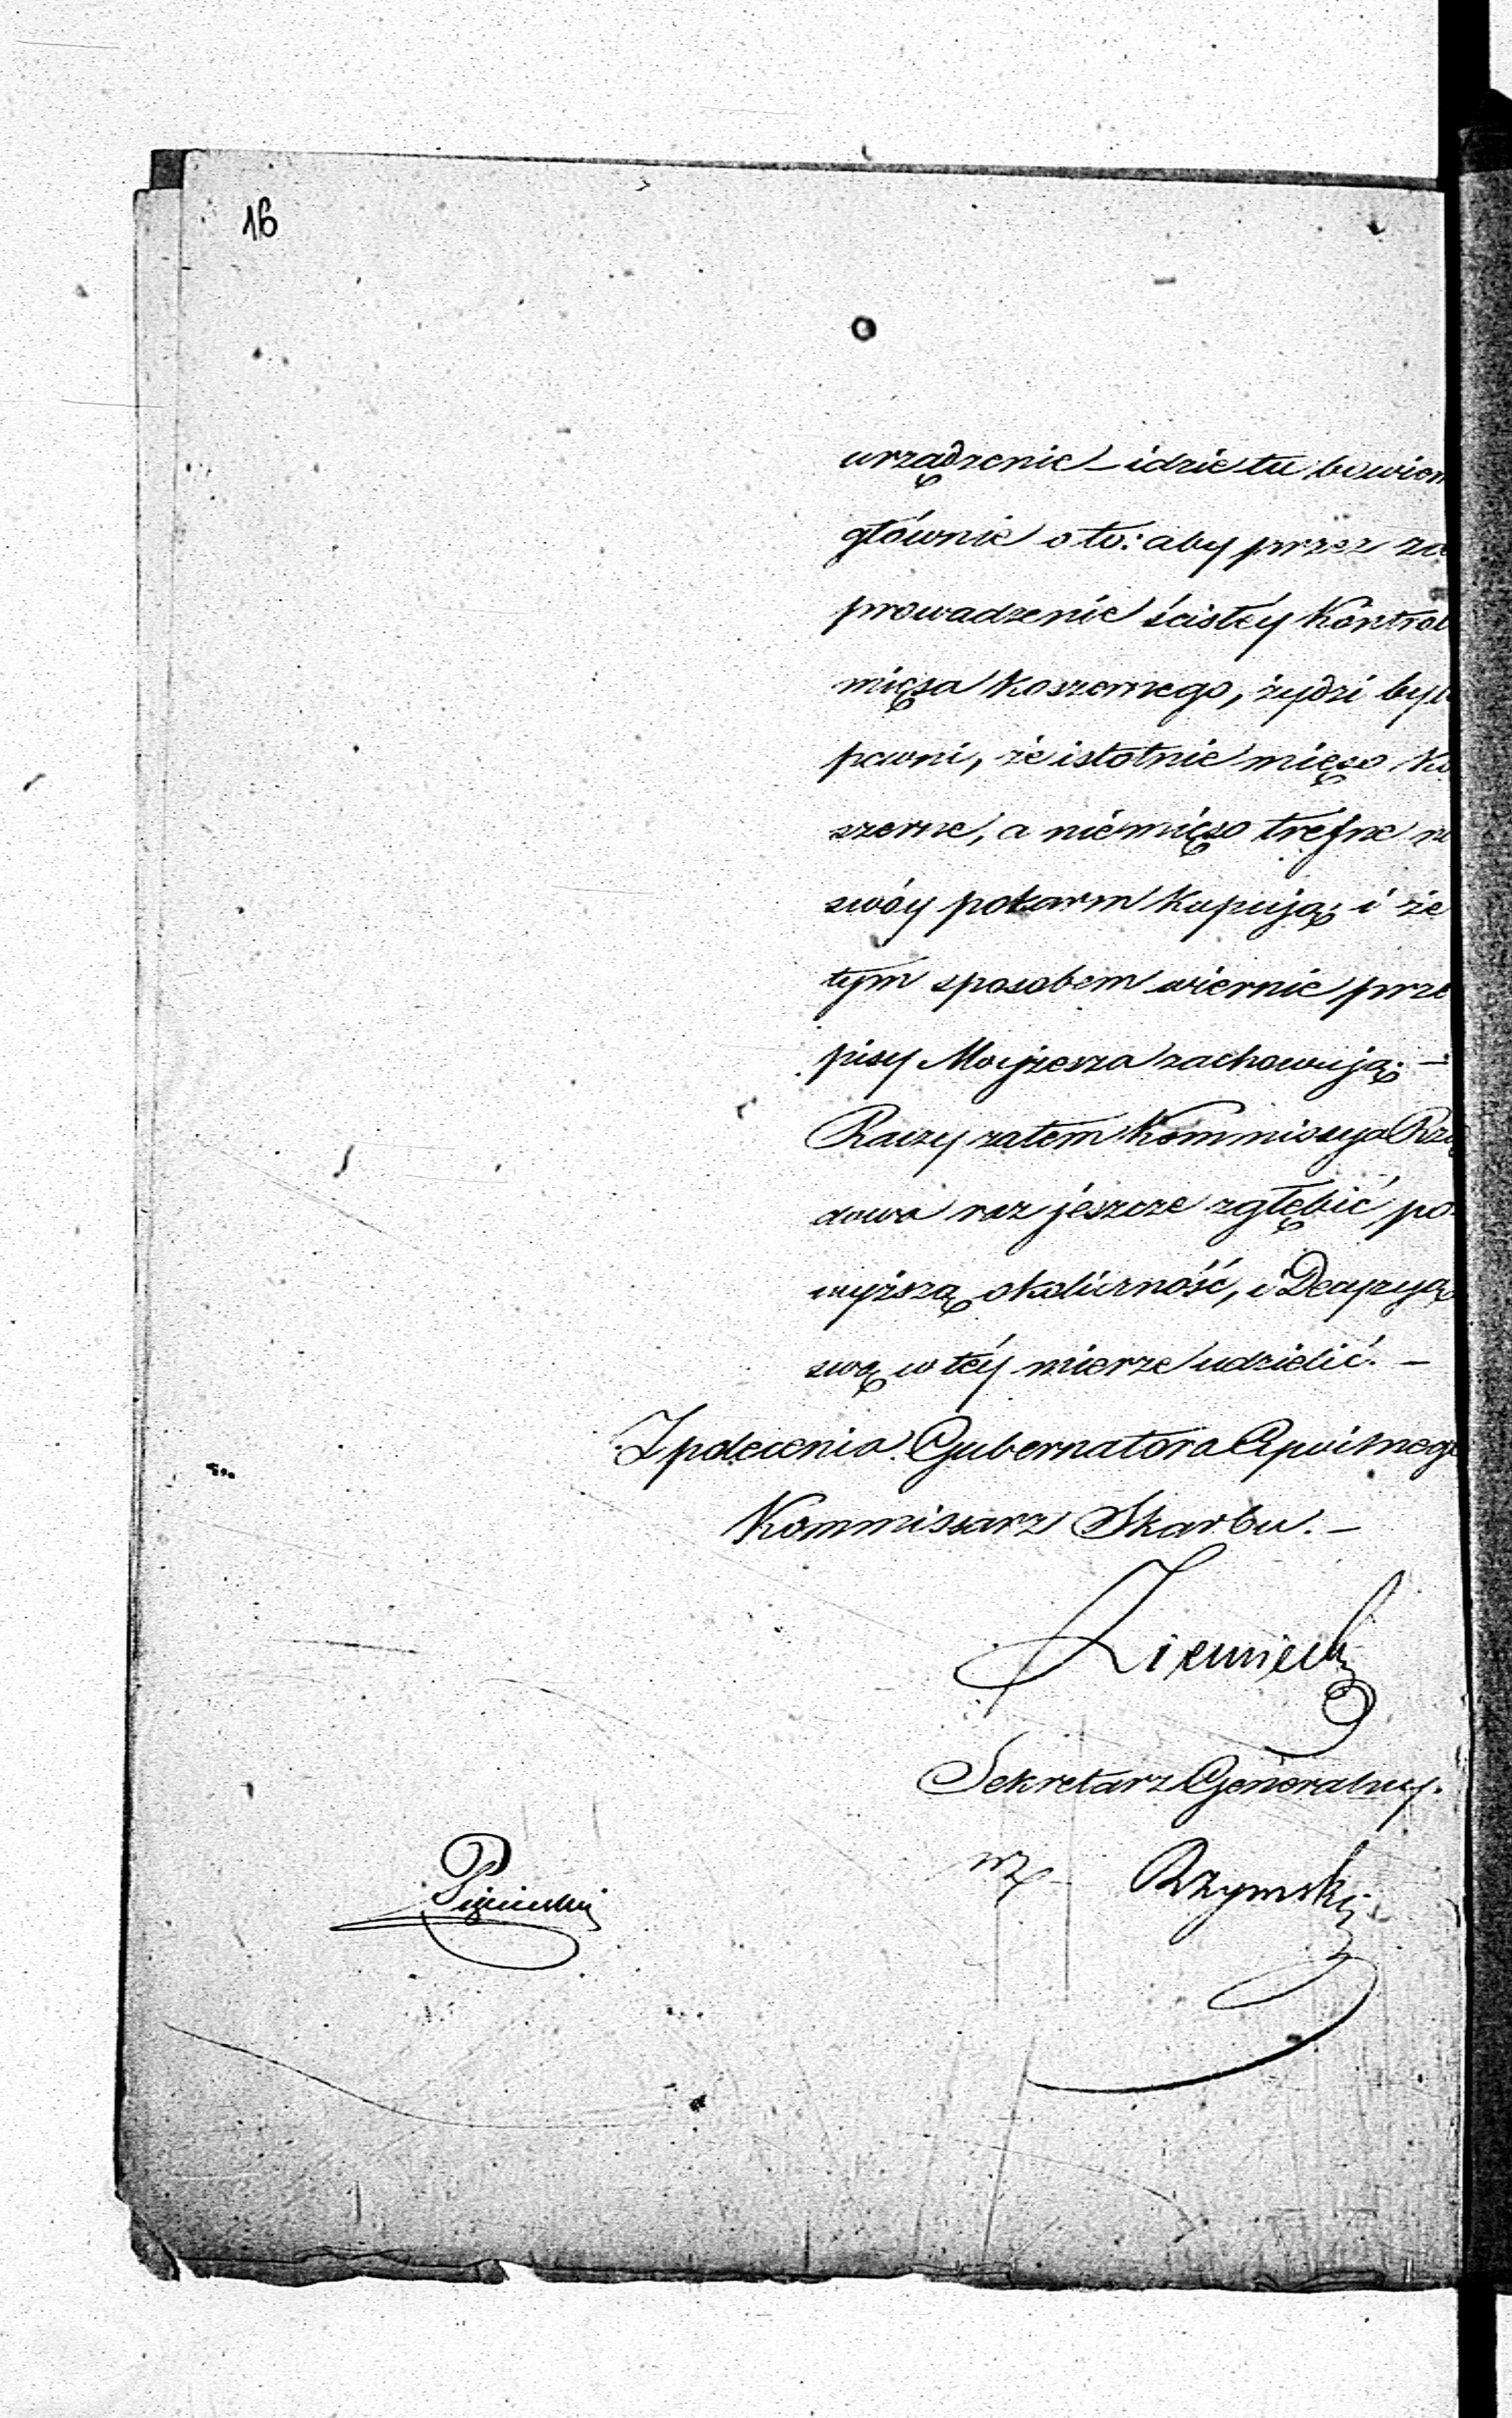 16
urządzenie – idzie tu bowiem
głównie o to: aby przez za
prowadzenie ścisłéy Kontrol
mięsa Koszernego, żydzi byli
pewni, że istotnie mięso Ko
szerne, a nie mięso trefne na
swóy pokarm Kupują, i że
tym sposobem wiernie prze
pisy Mojżesza zachowują. –
Raczy zatem Kommissya Rzą
dowa raz jeszcze zgłębić po
wyższą okoliczność, i Decyzyą
swą w téy mierze udzielić. –
Z polecenia Gubernatora Cywilnego
Kommissarz Skarbu. –
Ziemiecki
Sekretarz Generalny.
wz Rzymski